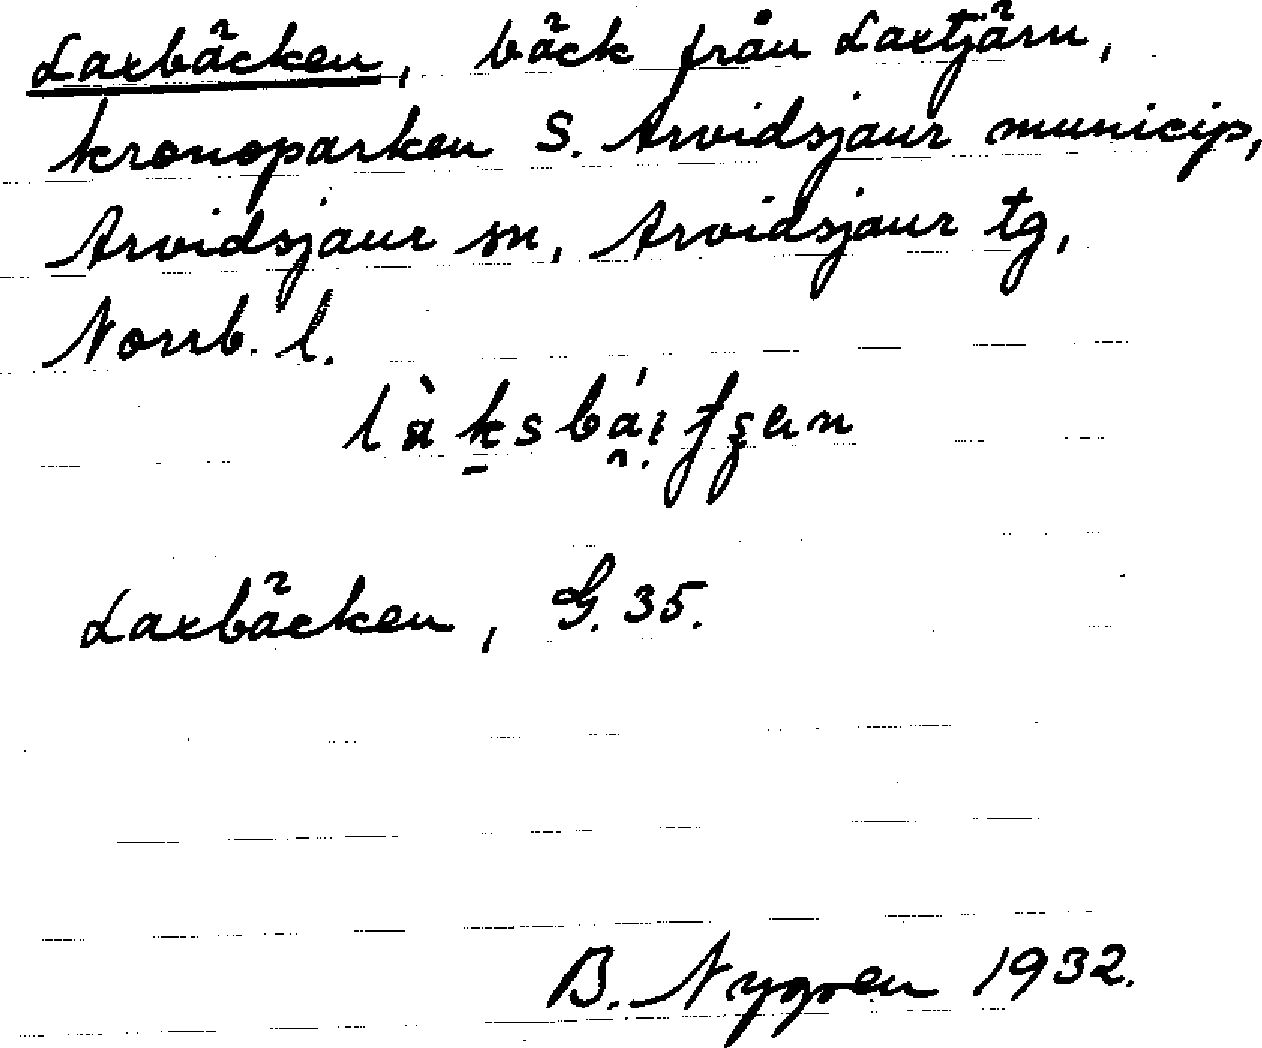 Laxbäcken, bäck från Laxtjärn,
kronoparken S. Arvidsjaur municip,
Arvidsjaur sn, Arvidsjaur tg,
Norrb. l.
Laxbäcken, G. 35.
B. Nygren 1932.